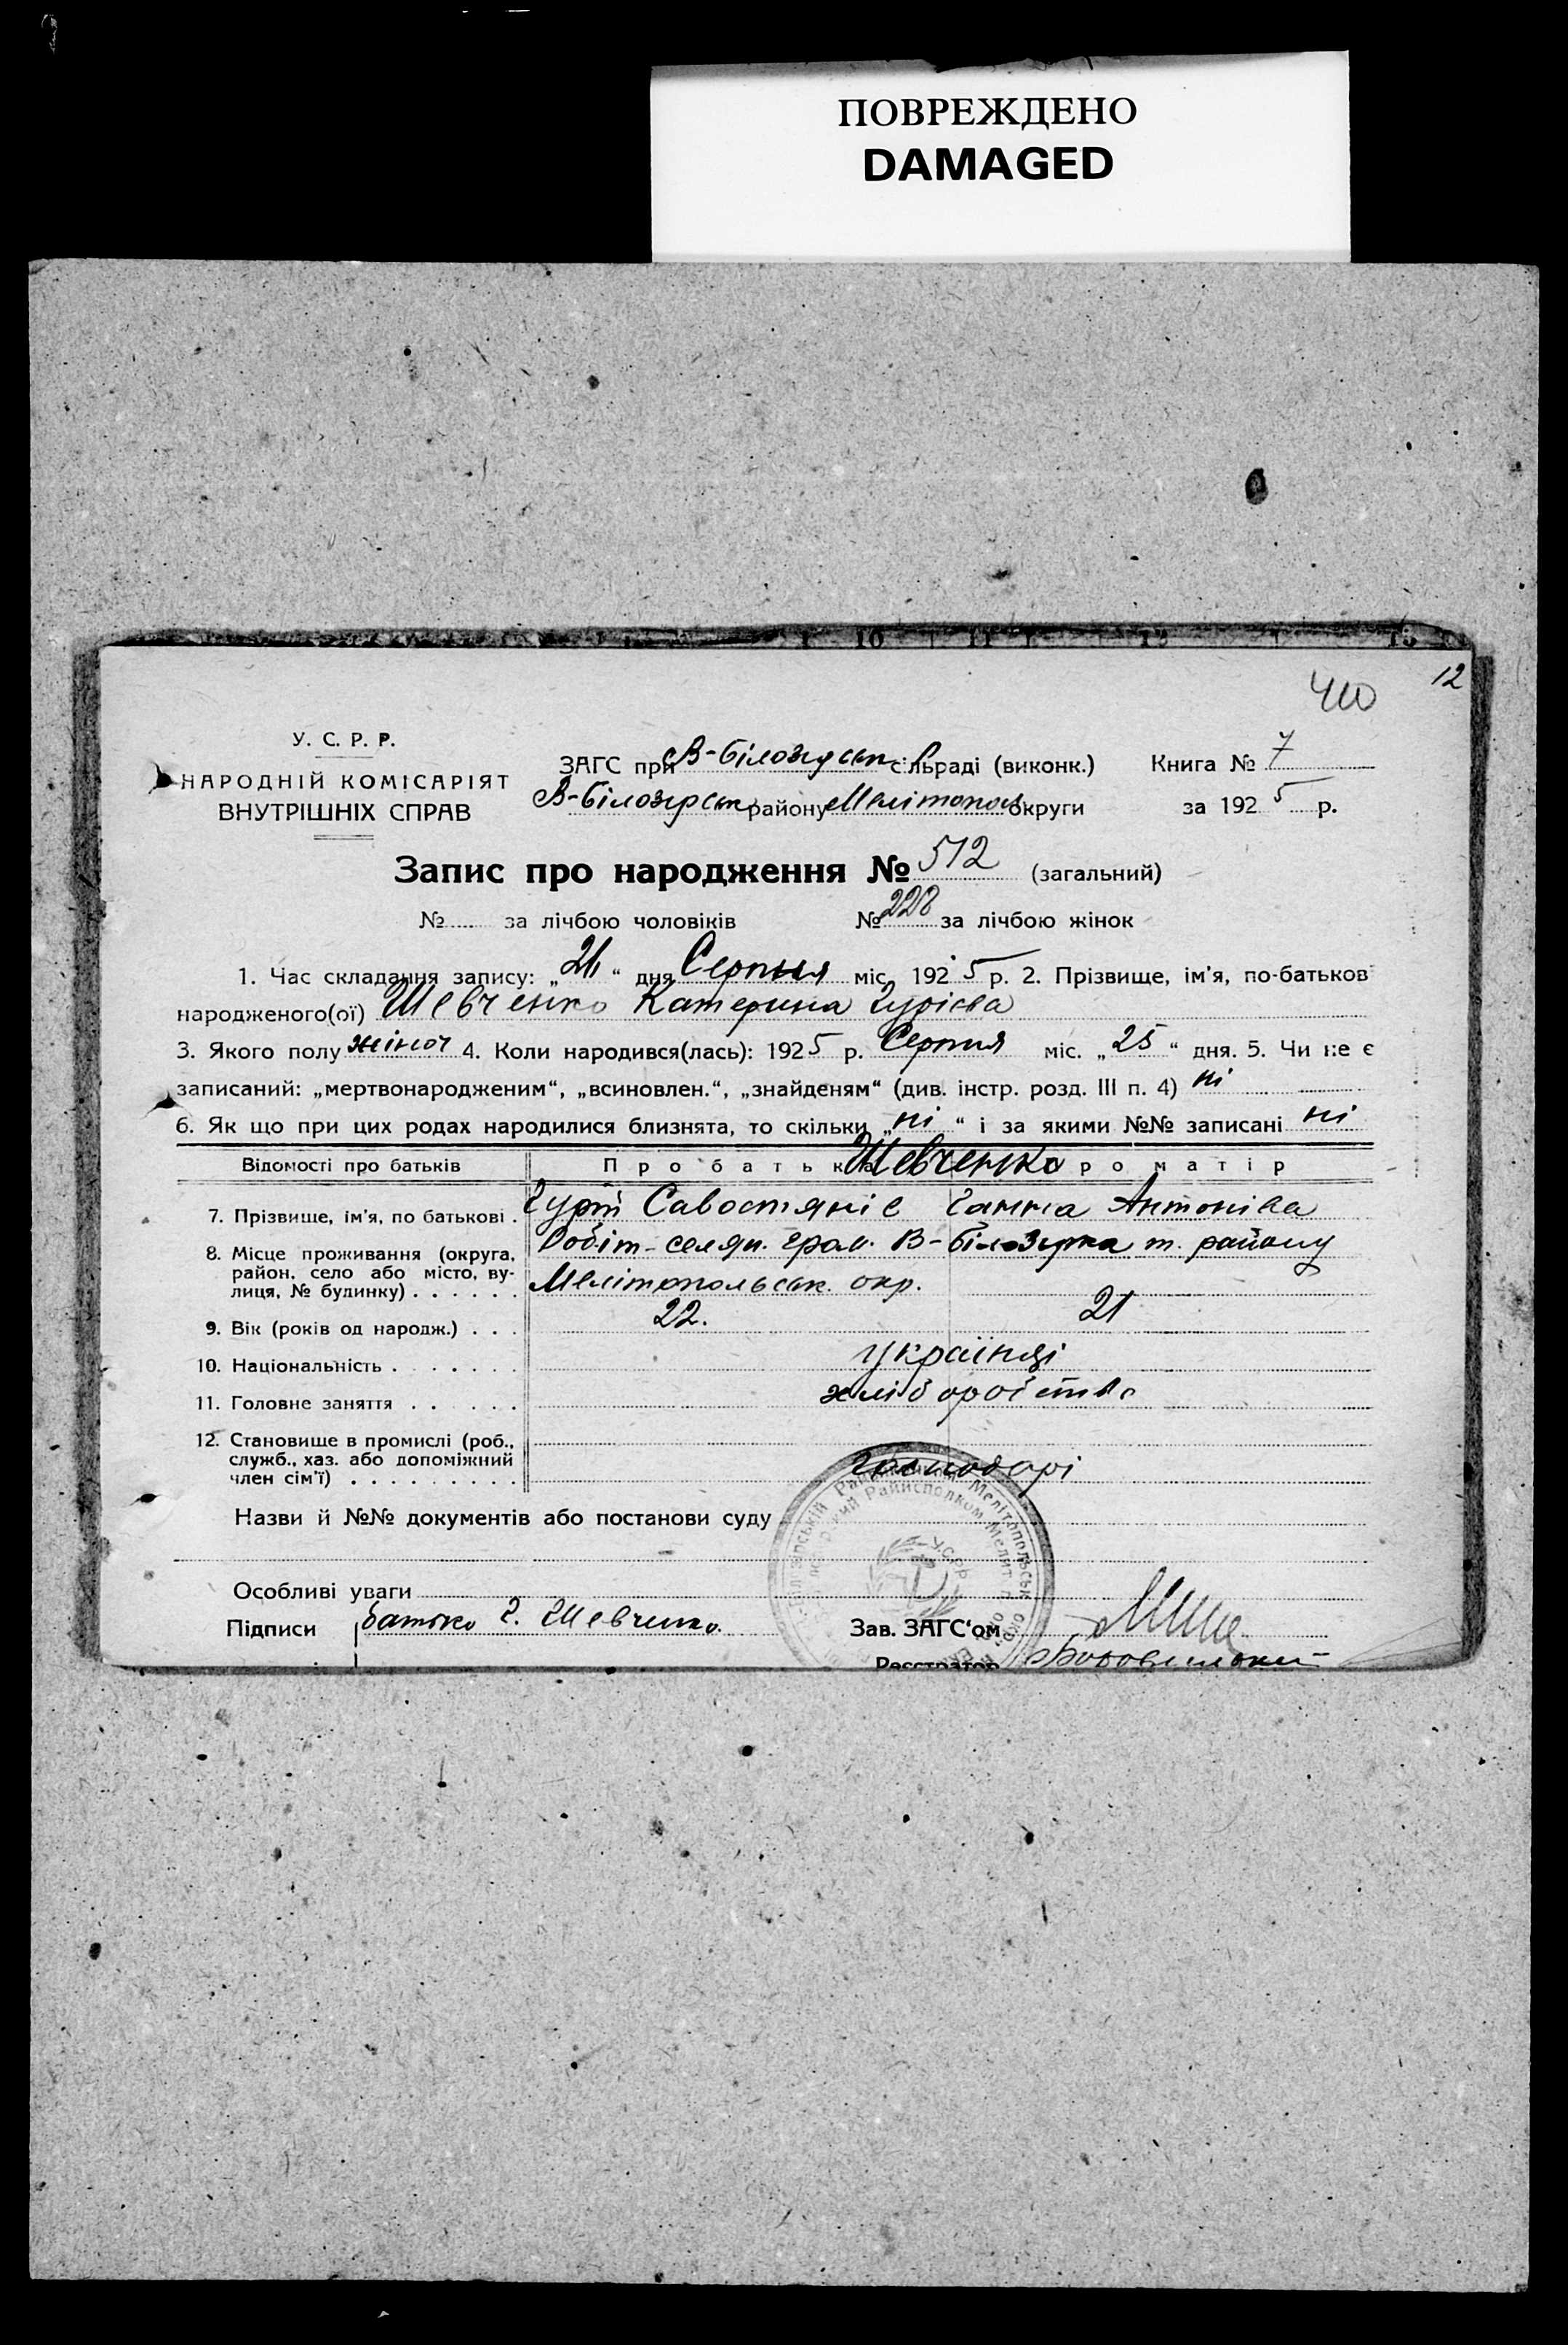 ПОВРЕЖДЕНО
DAMAGED
12
410
У. С. Р. Р.
НАРОДНІЙ КОМІСАРІЯТ
ВНУТРІШНІХ СПРАВ
ЗАГС при В-Білозерськ сільраді (виконк.) Книга № 7
В-Білозерськ району Мелітопол округи за 1925 р.
Запис про народження № 512 (загальний)
№ за лічбою чоловіків № 228 за лічбою жінок
1. Час складання запису: „ “ дня Серпня міс. 1925 р. 2. Прізвище, ім'я, по-батьков
народженого(ої) Шевченко Катерина Гурієва
3. Якого полу жіноч 4. Коли народився(лась): 1925 р. Серпня міс. „25“ дня. 5. Чи не є
записаний: „мертвонародженим“, „всиновлен.“, „знайденям“ (див. інстр. розд. III п. 4) ні
6. Як що при цих родах народилися близнята, то скільки „ні“ і за якими №№ записані ні
Відомості про батьків Про батьк Шевченко ро матір
7. Прізвище, ім'я, по батькові . Гурій Савостяніє Ганна Антоніва
8. Місце проживання (округа, район, село або місто, вулиця, № будинку) . . . . . . Робіт-селян. грам. В-Білозерка т. району
Мелітопольськ. окр.
9. Вік (років од народж.) . . . 22. 21
10. Національність . . . . . . . українці
11. Головне заняття . . . . . хліборобство
12. Становище в промислі (роб., служб., хаз. або допоміжний член сім'ї) . . . . . . . . . господарі
Назви й №№ документів або постанови суду
Особливі уваги
Підписи батько Г. Шевченко. Зав. ЗАГС'ом
Реєстратор
У.С.Р.Р.